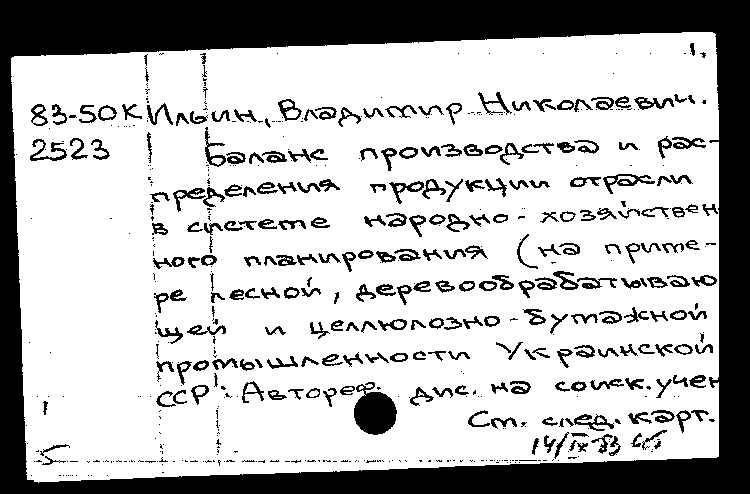 1.
83-50К Ильин, Владимир Николаевич.
2523 Баланс производства и рас-
пределения продукции отрасли
в системе народно-хозяйствен
ного планирования (на приме-
ре лесной, деревообрабатываю
щей и целлюлозно-бумажной
промышленности Украинской
ССР: Автореф. дис. на соиск. учен
1
Ст. след. карт.
5 14/IX-83